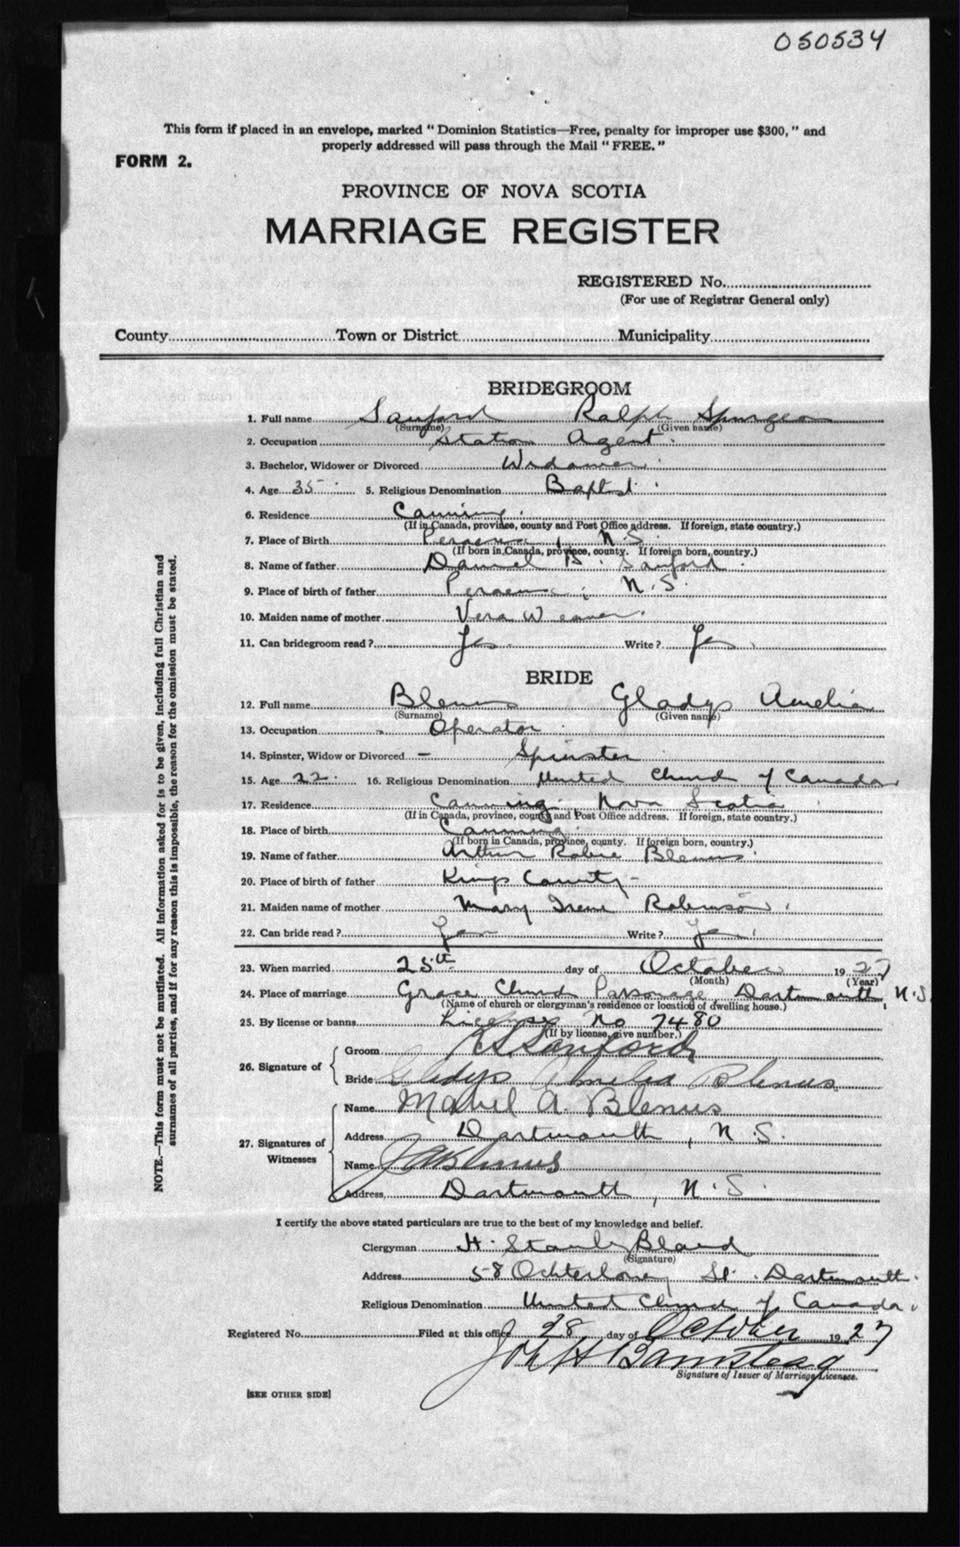 050534
This form if placed in an envelope, marked "Dominion Statistics—Free, penalty for improper use $300," and
properly addressed will pass through the Mail "FREE."
FORM 2.
PROVINCE OF NOVA SCOTIA
MARRIAGE REGISTER
REGISTERED No.
(For use of Registrar General only)
County Town or District Municipality
BRIDEGROOM
1. Full name Sanford Ralph Spurgeon
(Surname) (Given name)
2. Occupation Station Agent
3. Bachelor, Widower or Divorced Widower
4. Age 35 5. Religious Denomination Baptist
6. Residence Canning
(If in Canada, province, county and Post Office address. If foreign, state country.)
7. Place of Birth N.S.
(If born in Canada, province, county. If foreign born, country.)
8. Name of father Daniel B. Sanford
9. Place of birth of father N.S.
10. Maiden name of mother Vera Weaver
11. Can bridegroom read? Yes Write? Yes
BRIDE
12. Full name Blenus Gladys Amelia
(Surname) (Given name)
13. Occupation Operator
14. Spinster, Widow or Divorced – Spinster
15. Age 22 16. Religious Denomination United Church of Canada
17. Residence Canning, Nova Scotia
(If in Canada, province, county and Post Office address. If foreign, state country.)
18. Place of birth Canning
(If born in Canada, province, county. If foreign born, country.)
19. Name of father Arthur Blenus
20. Place of birth of father Kings County
21. Maiden name of mother Mary Irene Robinson
22. Can bride read? Yes Write? Yes
23. When married 25th day of October 1927
(Month) (Year)
24. Place of marriage Grace Church Parsonage Dartmouth N.S.
(Name of church or clergyman's residence or location of dwelling house.)
25. By license or banns License No 7480
(If by license, give number.)
26. Signature of
Groom R S Sanford
Bride Gladys Amelia Blenus
27. Signatures of Witnesses
Name Mabel A. Blenus
Address Dartmouth, N.S.
Name Blenus
Address Dartmouth, N.S.
I certify the above stated particulars are true to the best of my knowledge and belief.
Clergyman H. Stanley Bland
(Signature)
Address 58 Ochterloney St. Dartmouth
Religious Denomination United Church of Canada.
Registered No. Filed at this office 28 day of October 1927
Signature of Issuer of Marriage Licenses.
[SEE OTHER SIDE]
NOTE.—This form must not be mutilated. All information asked for is to be given, including full Christian and
surnames of all parties, and if for any reason this is impossible, the reason for the omission must be stated.